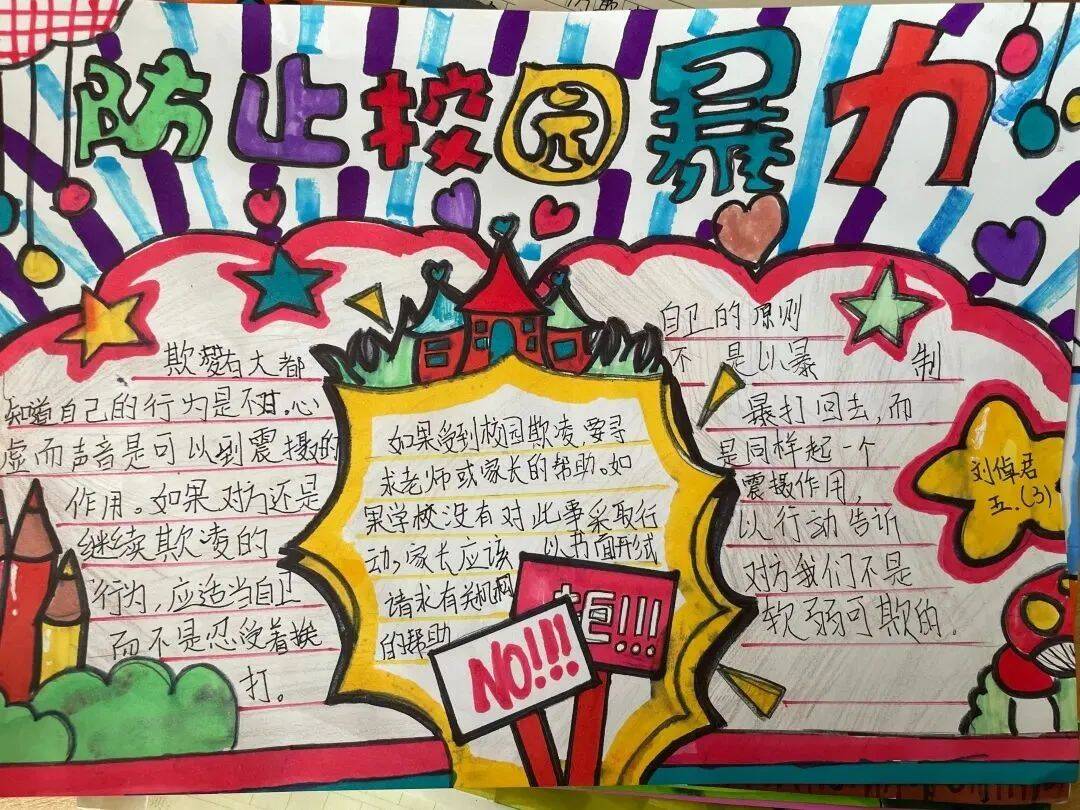 防止校园暴力
欺大都
知道自己的行为是不对。心
虚而声音是可以到震摄的
作用。如果对方还是
继续欺凌的
行为,应适当自卫
而不是忍受着挨
打。
如果受到校园欺凌,要寻
求老师或家长的帮助。如
果学校没有对此事采取行
动,家长应该 以书面形式
请求有关机构
的帮助
!!!
NO!!!
自卫的原则
不是以暴 制
暴打回去,而
是同样起一个
震摄作用,
以行动告诉
对方我们不是
软弱可欺的.
刘倬君
五.(3)